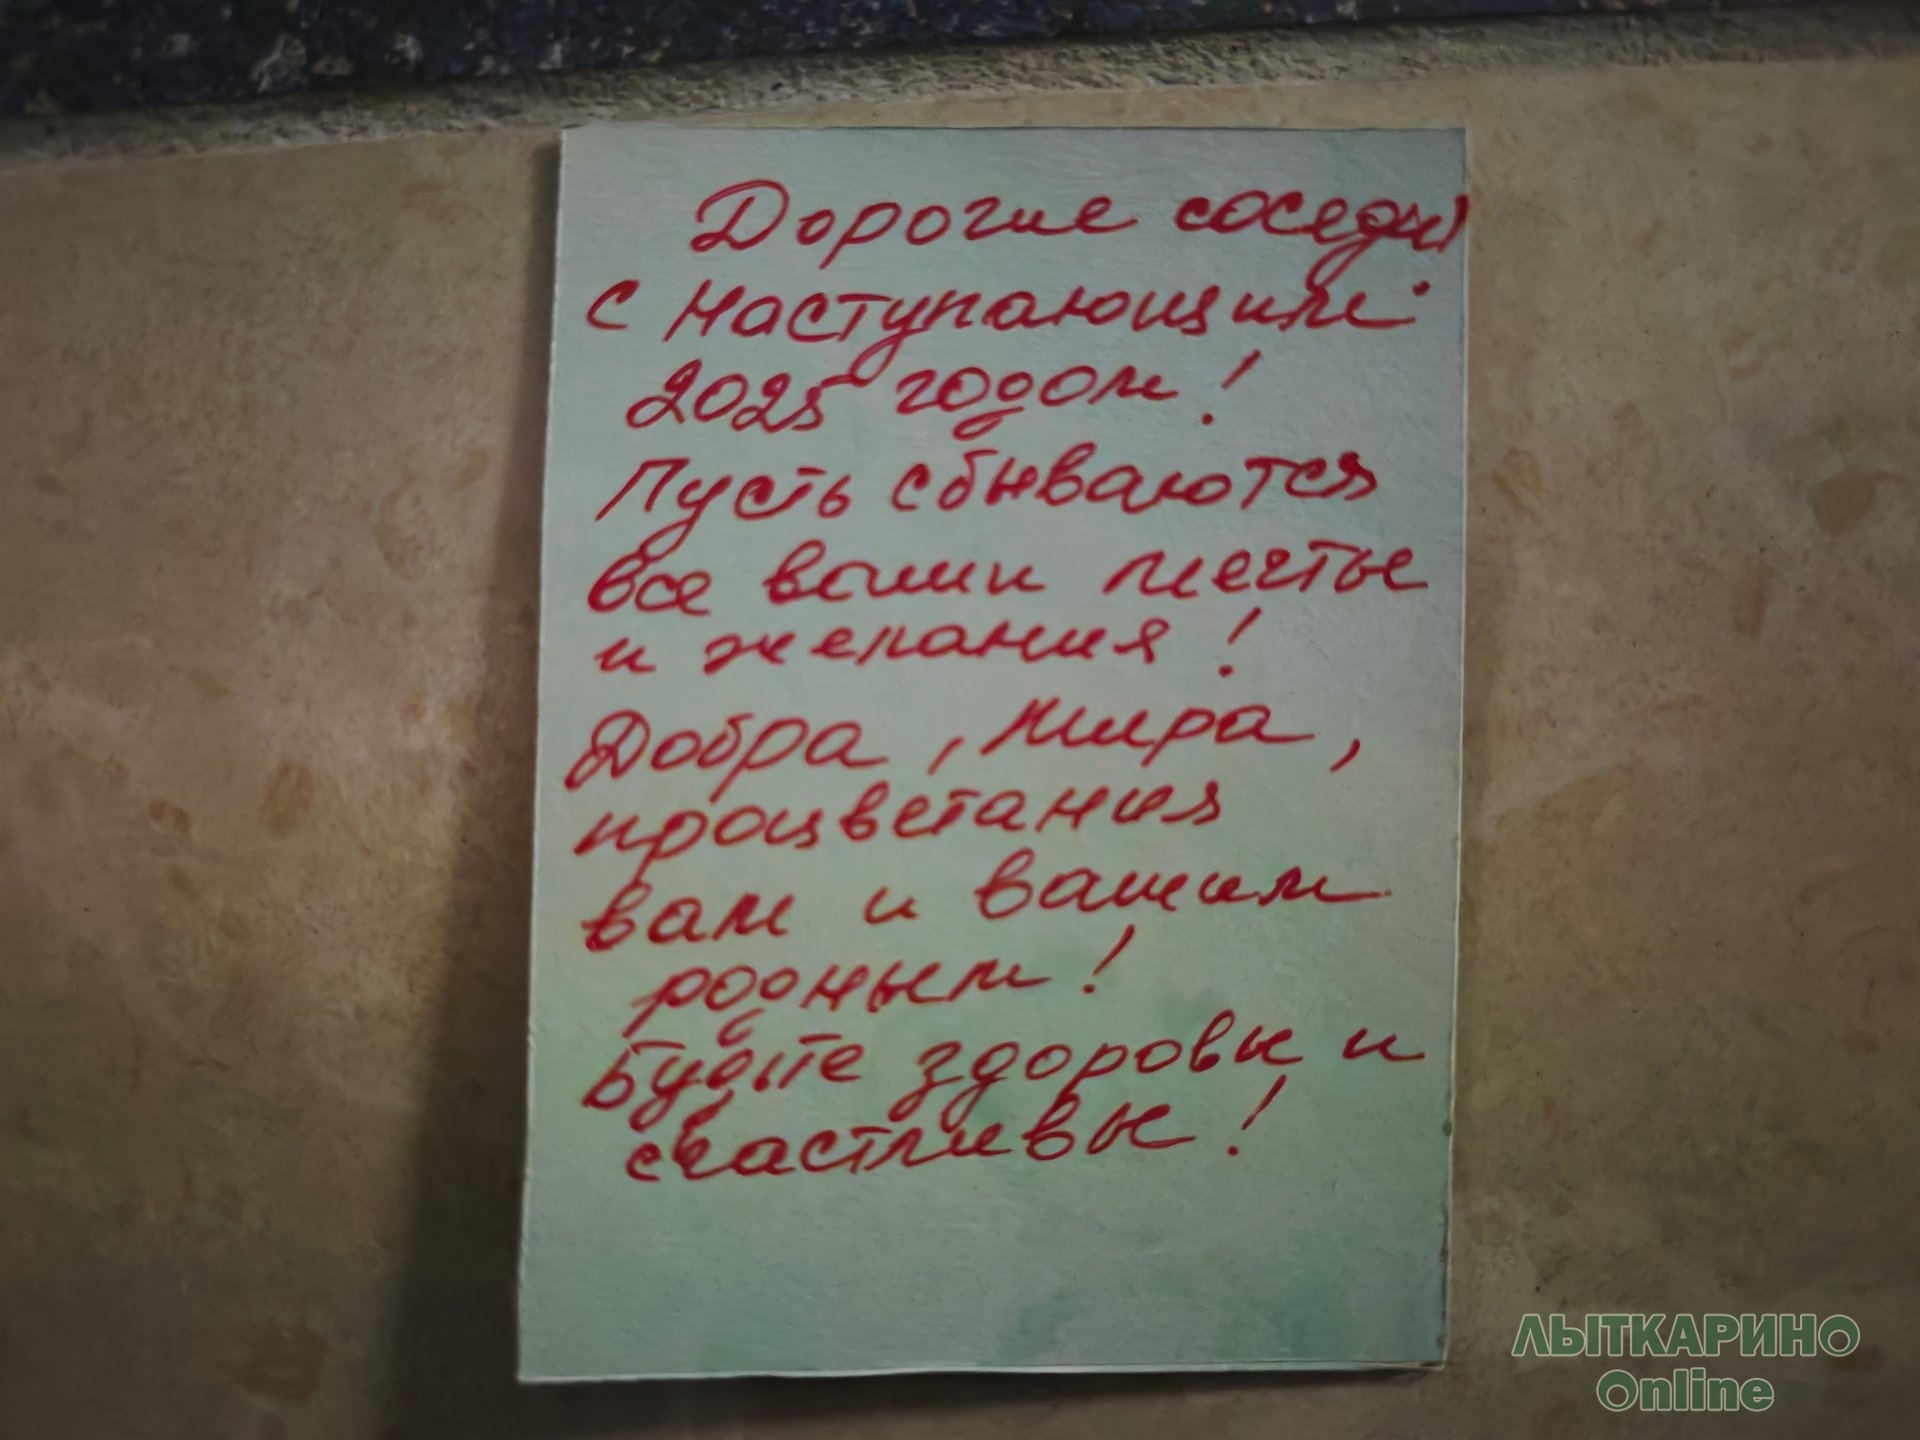 Дорогие соседи!
с Наступающим
2025 годом!
Пусть сбываются
все ваши мечты
и желания!
Добра, Мира,
процветания
вам и вашим
родным!
Будьте здоровы и
счастливы!
ЛЫТКАРИНО
Online